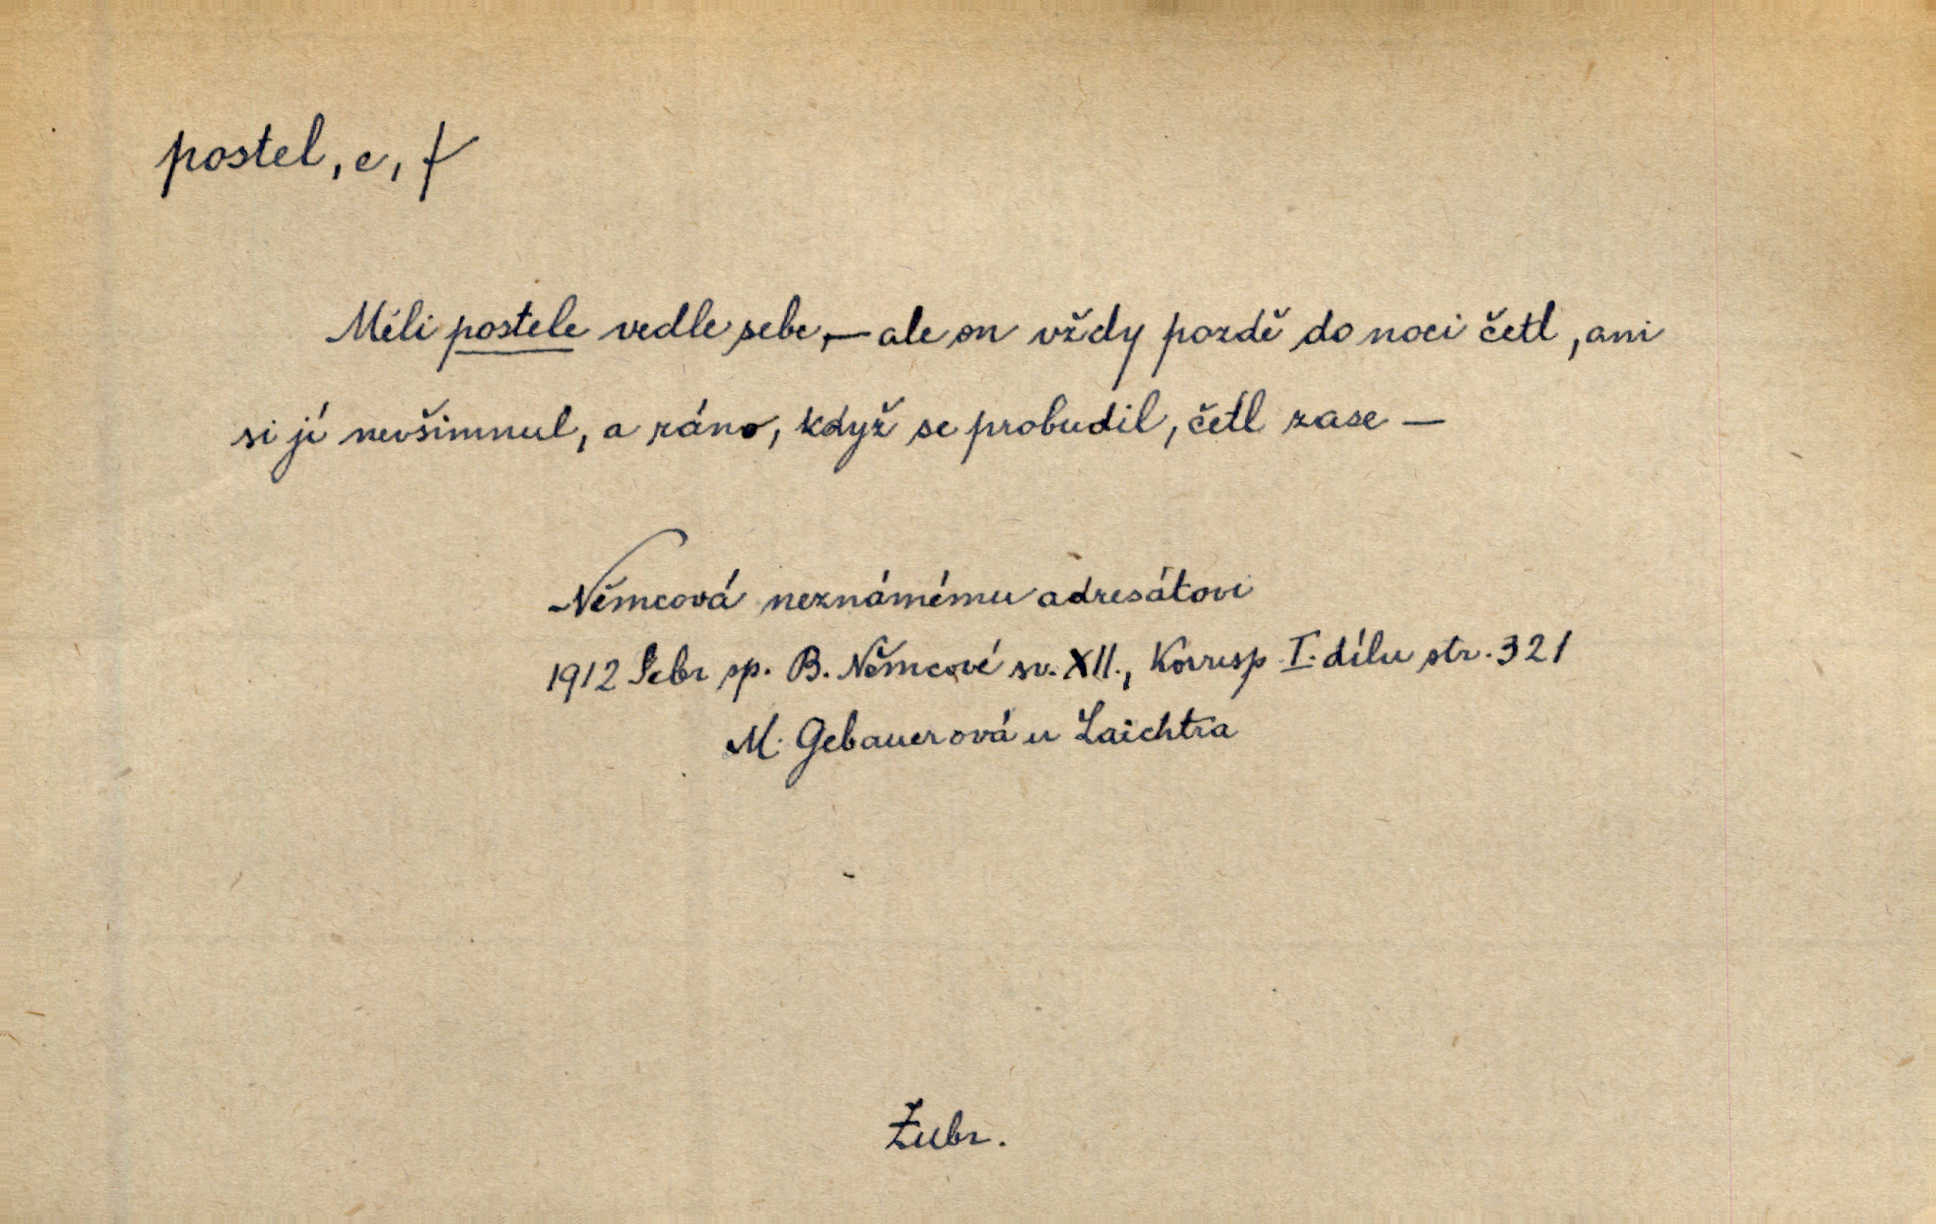 postel, e, f
Měli postele vedle sebe, — ale on vždy pozdě do noci četl, ani
si jí nevšimnul, a ráno, když se probudil, četl zase —
Němcová neznámému adresátovi
1912 Sebr sp. B. Němcové sv. XII., Korresp I. dílu str. 321
M. Gebauerová u Laichtra
Žubr.